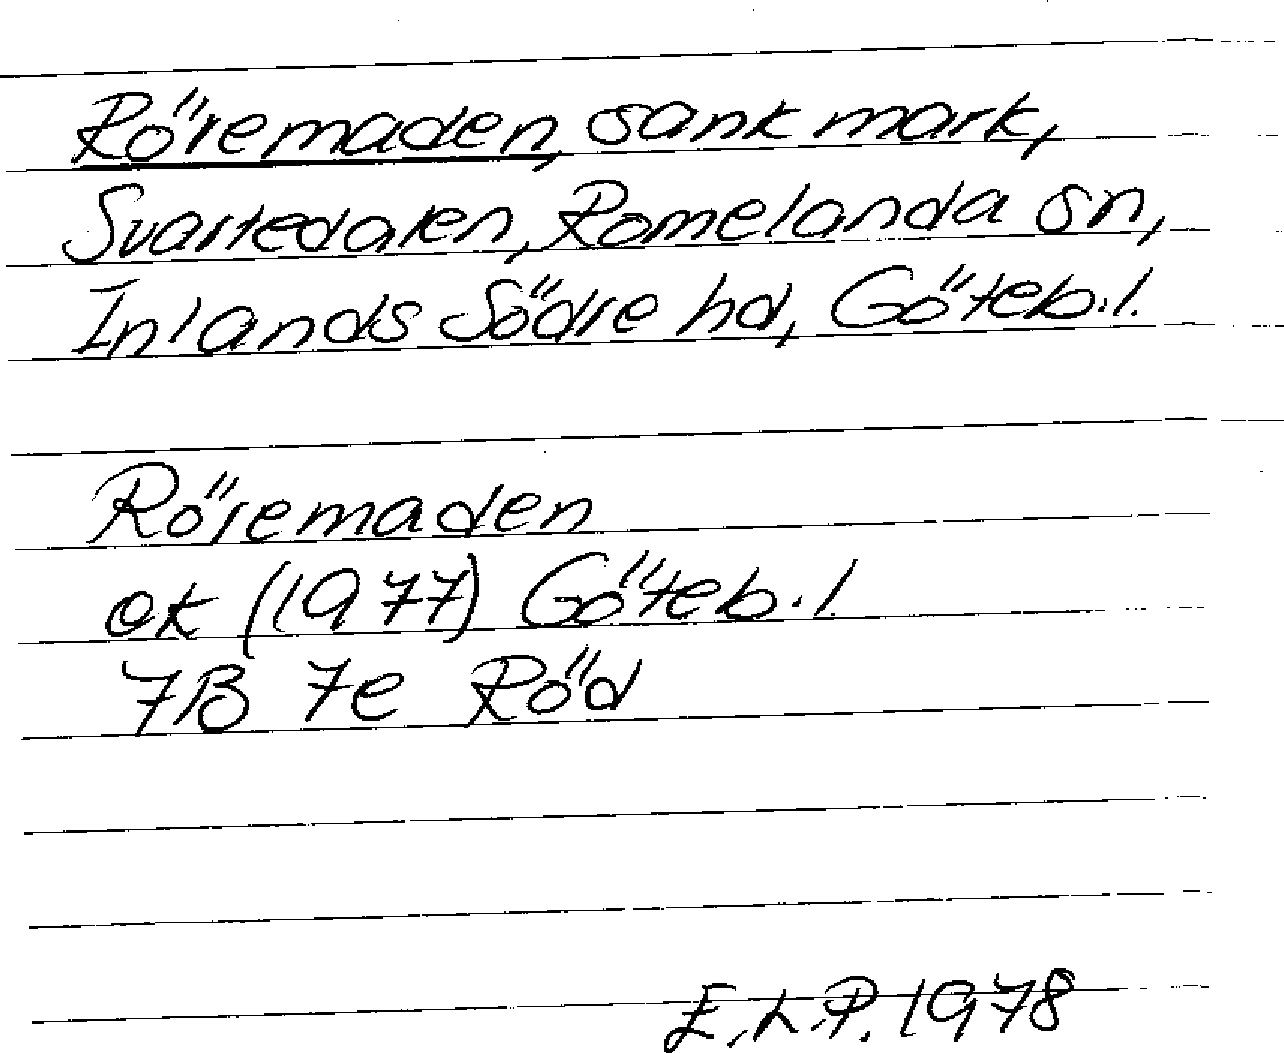 Röremaden, sank mark,
Svartedalen, Romelanda sn,
Inlands Södre hd, Göteb.l.
Röremaden
ek (1977) Göteb.l
7B 7e Röd
E.L.P. 1978